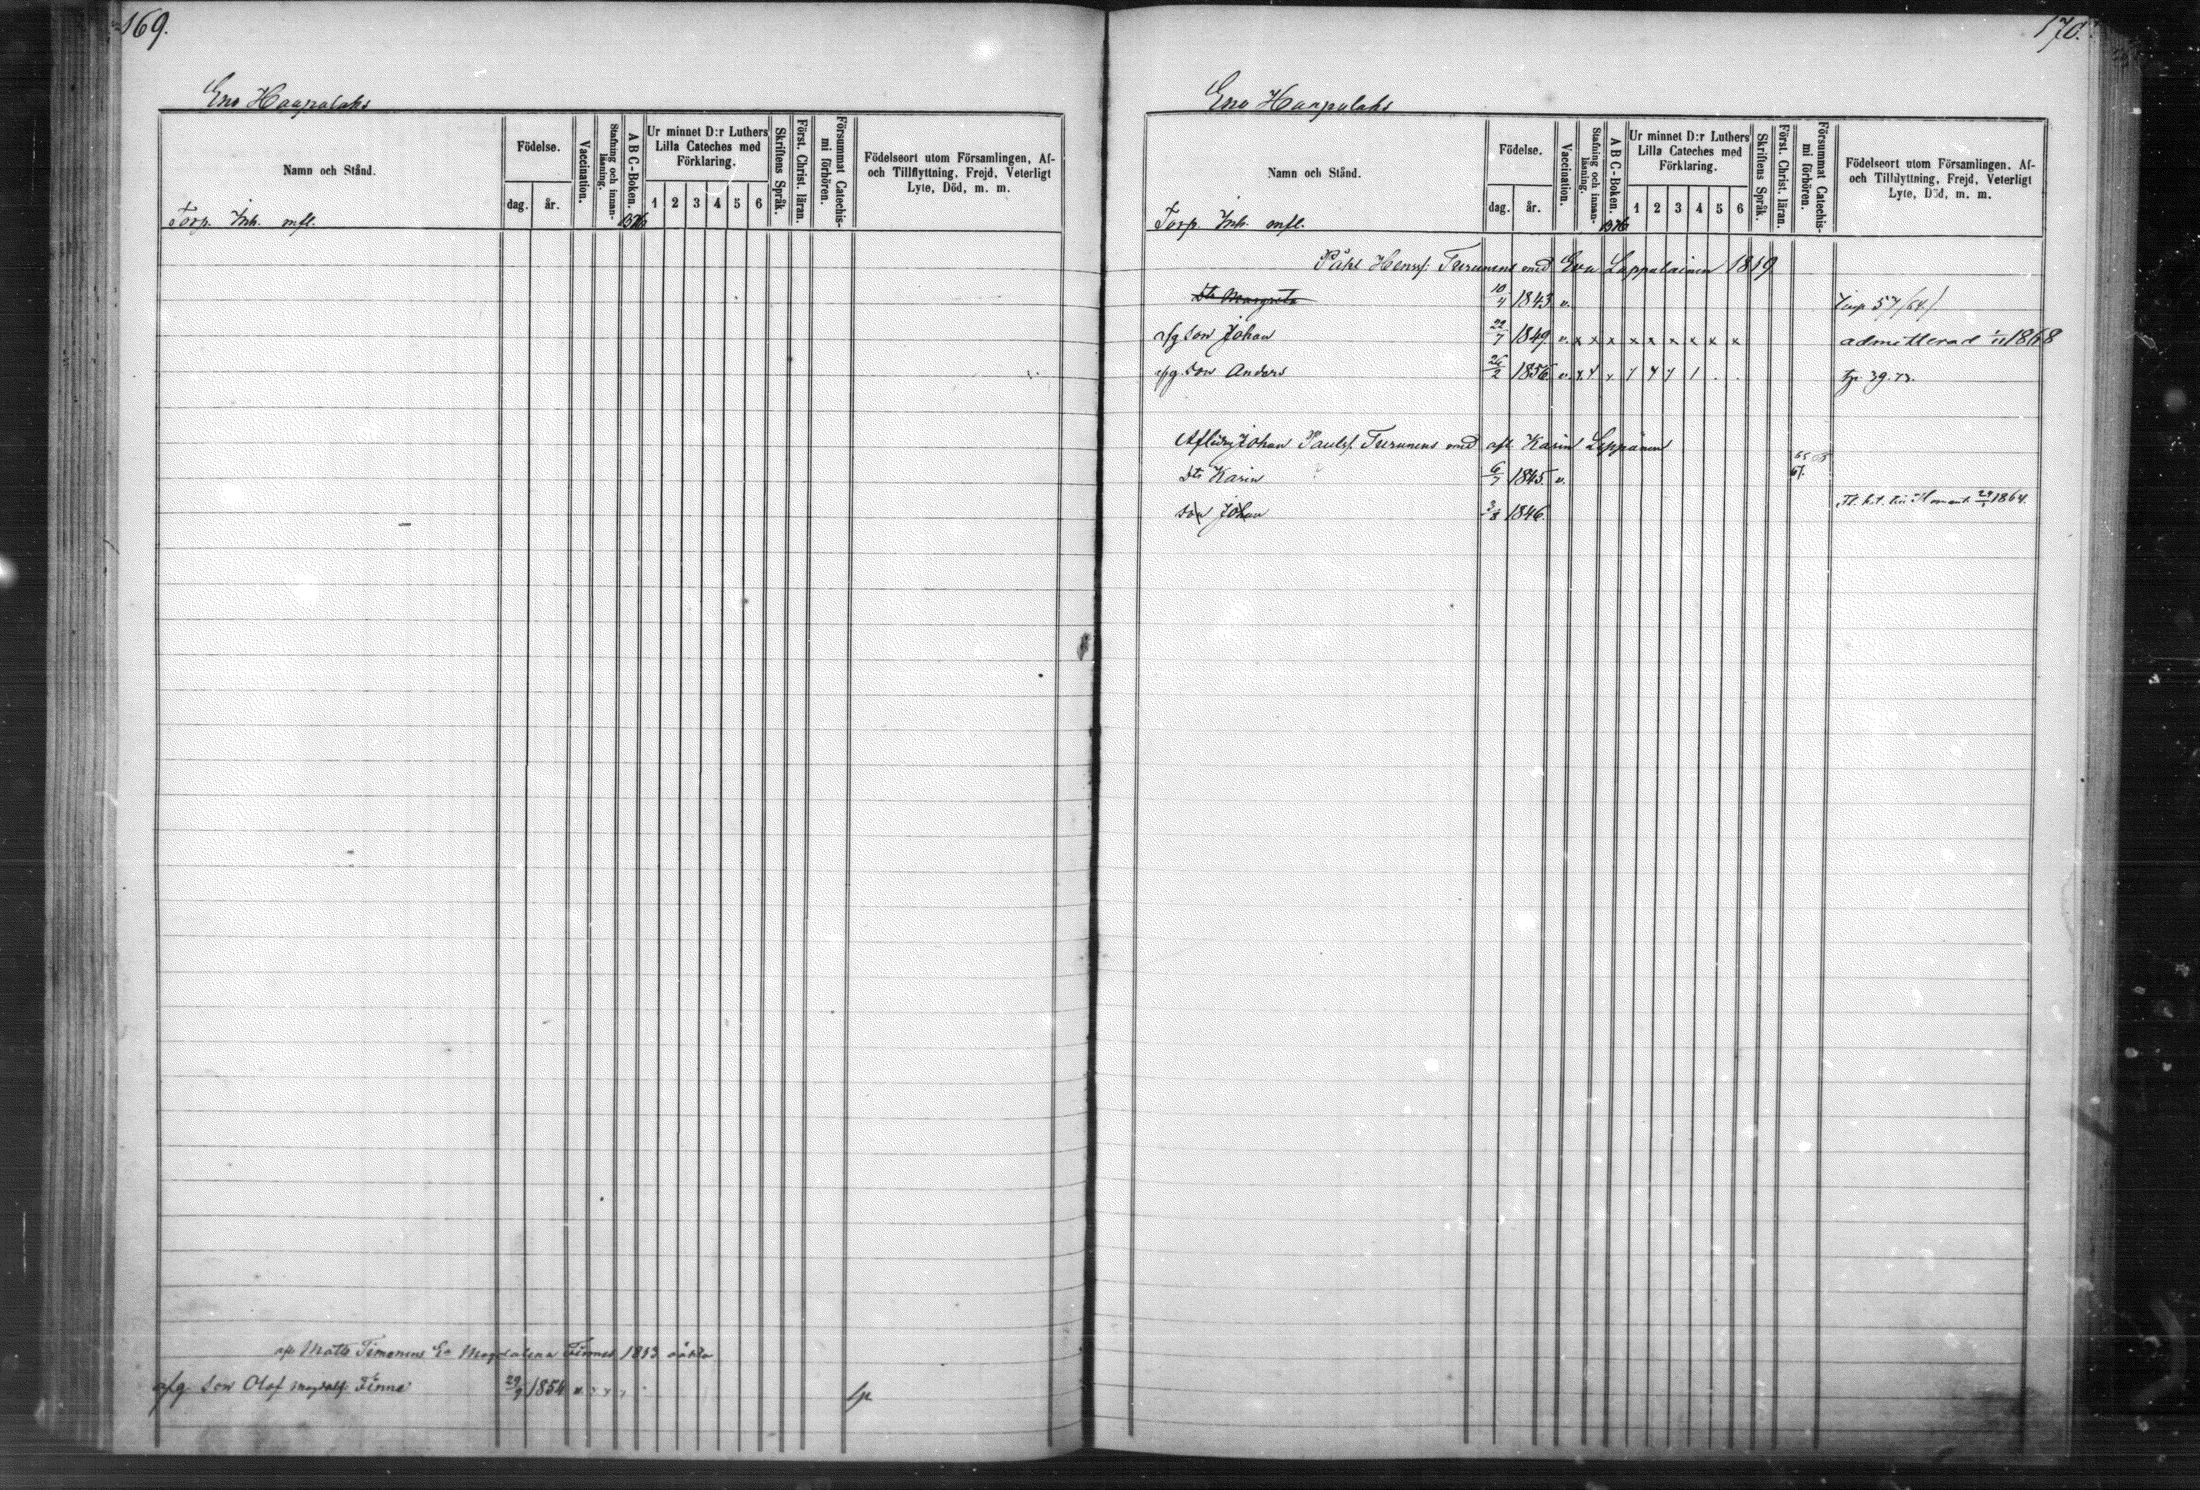 169.
Eno Haapalaks
Namn och Stånd.
Födelse.
dag. år.
Vaccination.
Stafning och innan-läsning.
A B C-Boken.
Ur minnet D:r Luthers Lilla Cateches med Förklaring.
1 2 3 4 5 6
Skriftens Språk.
Först. Christ. läran.
Försummat Catechis-mi förhören.
Födelseort utom Församlingen, Af-
och Tillflyttning, Frejd, Veterligt
Lyte, Död, m. m.
Torp. Inh. mfl.
afl Matts Timonens Ea Magdalena Finnes 1813 oäkta
afg. son Olof Magdalf. Finne 29/9 1854 v.
170.
Eno Haapalaks
Namn och Stånd.
Födelse.
dag. år.
Vaccination.
Stafning och innan-läsning.
A B C-Boken.
Ur minnet D:r Luthers Lilla Cateches med Förklaring.
1 2 3 4 5 6
Skriftens Språk.
Först. Christ. läran.
Försummat Catechis-mi förhören.
Födelseort utom Församlingen, Af-
och Tillflyttning, Frejd, Veterligt
Lyte, Död, m. m.
Torp. Inh. mfl.
Påhl Henrsf. Turunens med Eva Lappalainen 1819
dtr Margreta 10/4 1843 v. 57 (64)
afg son Johan 22/7 1849 v. x x x x x x x x x admitterad 1868
afg. son Anders 26/2 1856 v. 39. 73.
Aflidne Johan Paulsf. Turunens med afl Karin Leppänen
dtr Karin 6/7 1845 v. 65 68 67.
son Johan 3/8 1846 1864.